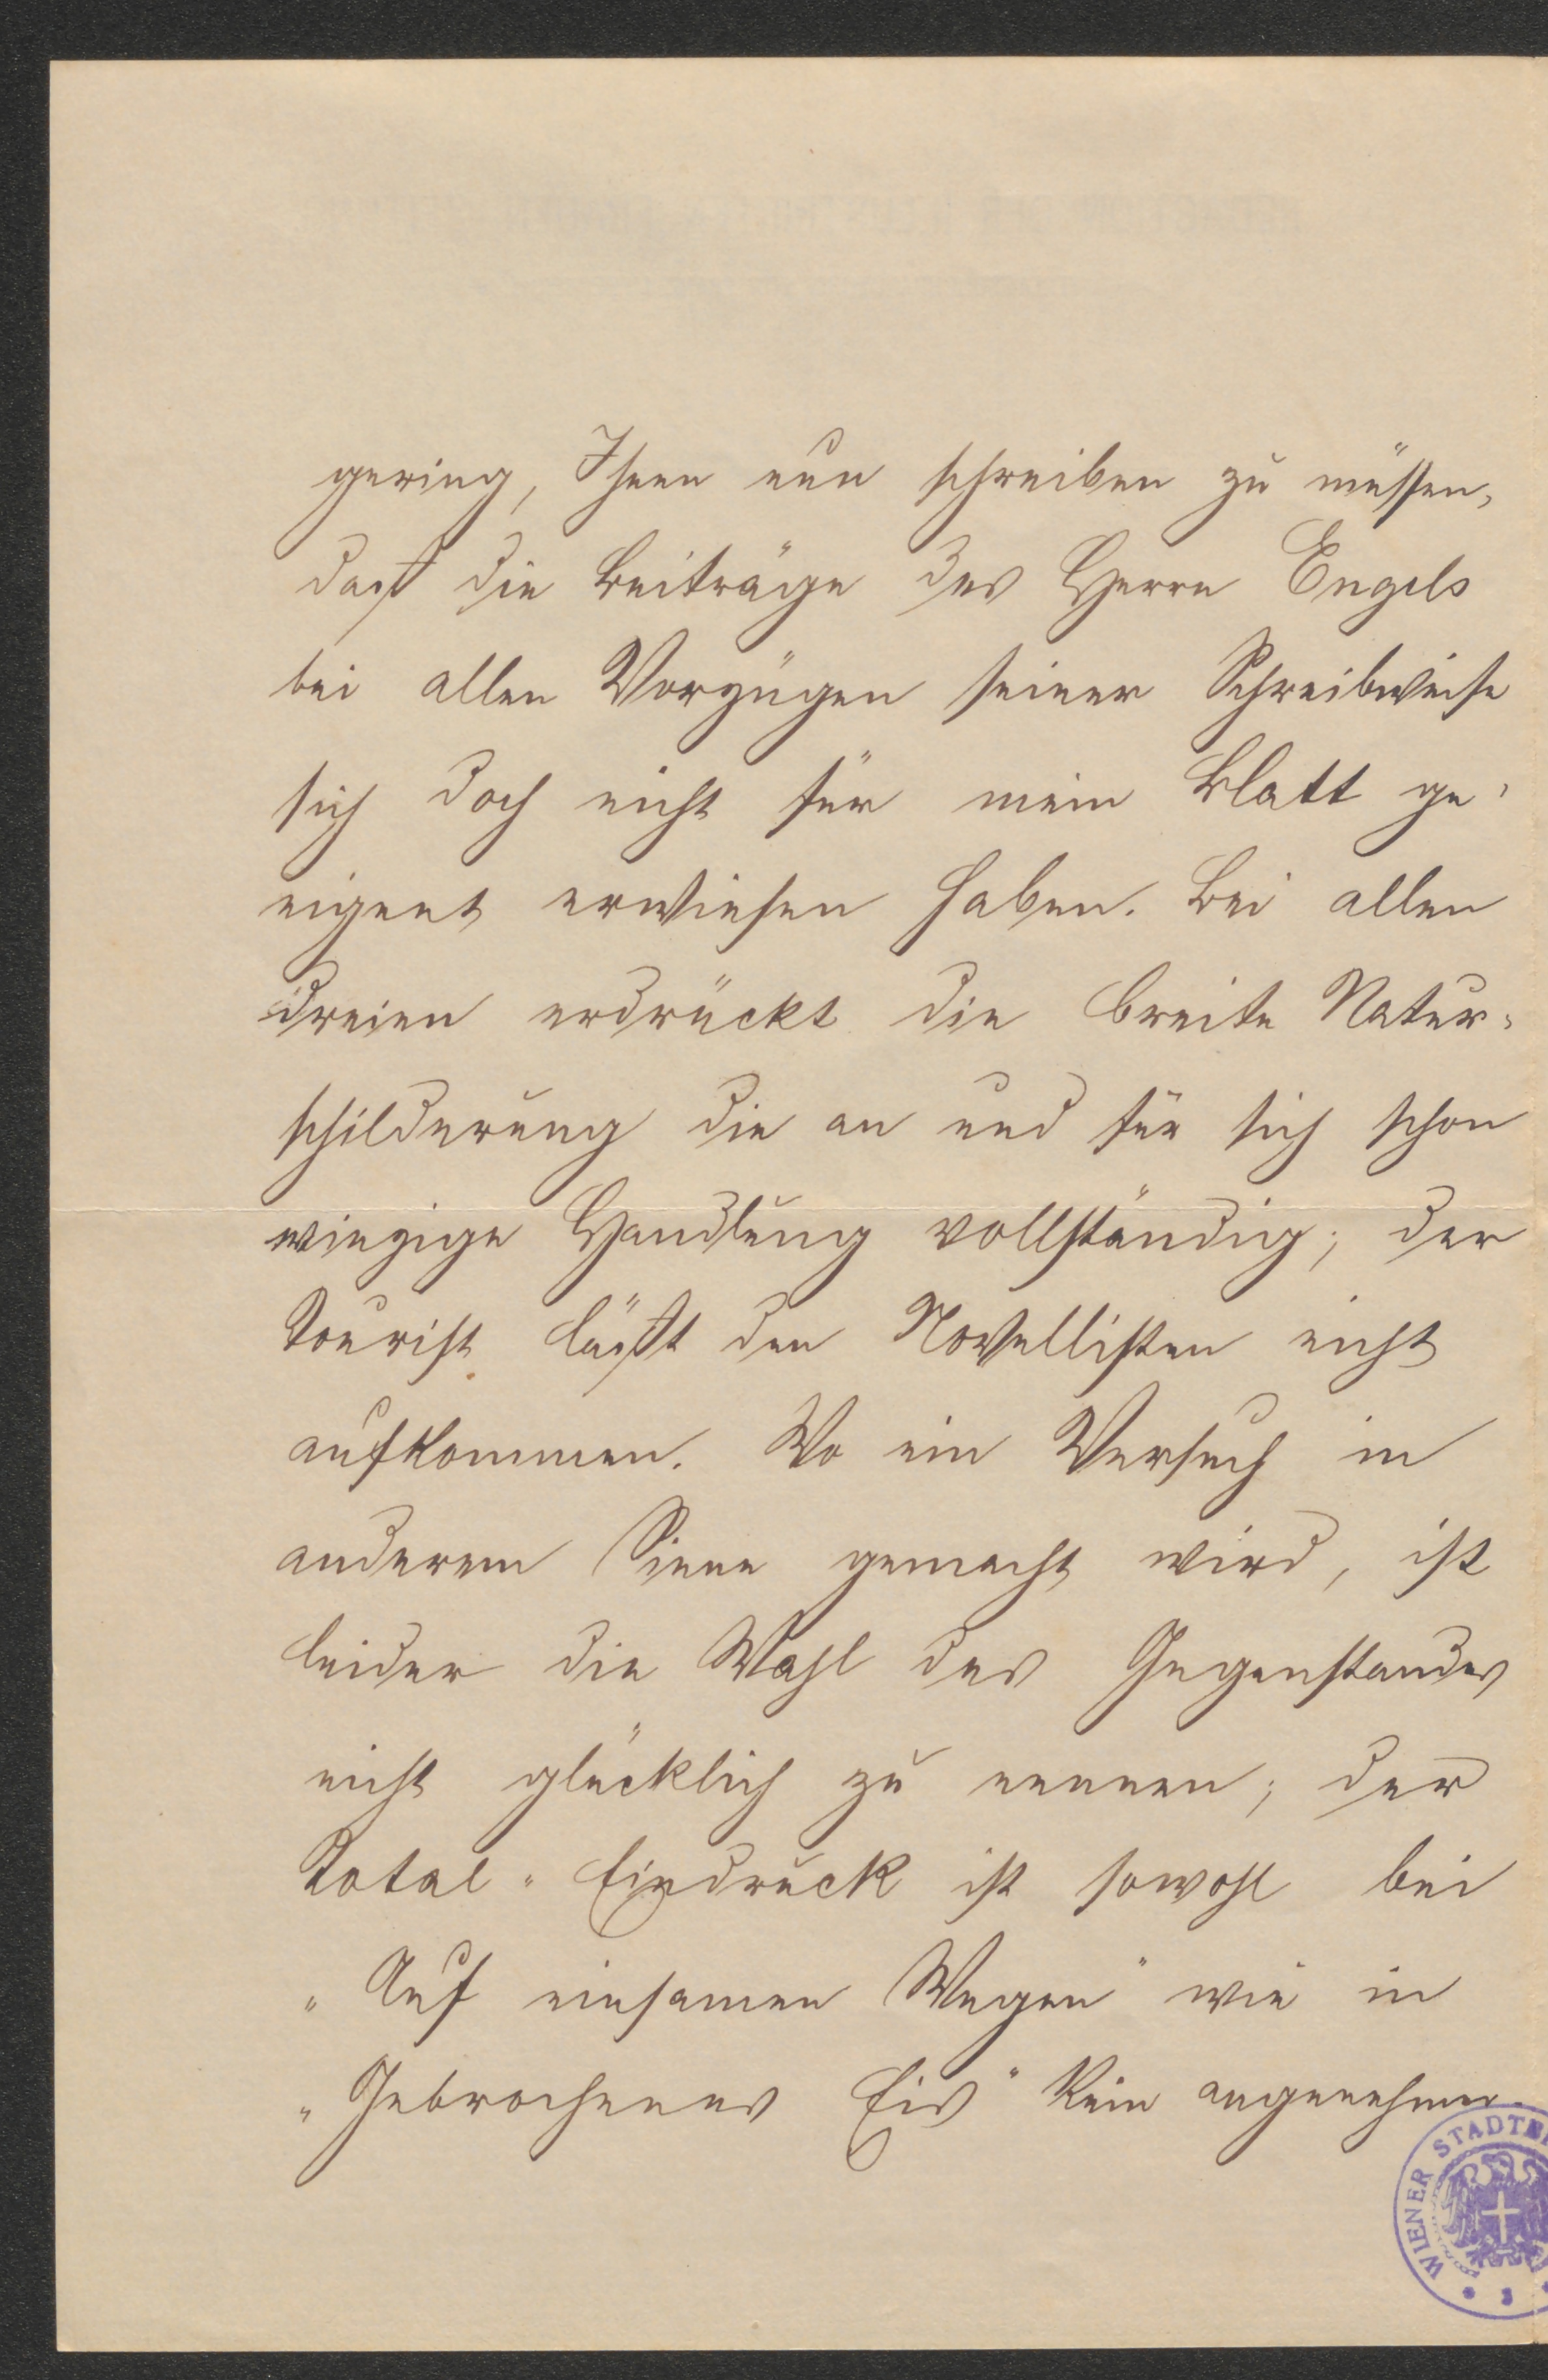 gering, Ihnen nun schreiben zu müssen,
daß die Beiträge des Herrn Engels
bei allen Vorzügen seiner Schreibweise
sich doch nicht für mein Blatt ge-
eignet erwiesen haben. Bei allen
dreien erdrückt die breite Natur-
schilderung die an und für sich schon
winzige Handlung vollständig; der
Tourist läßt den Novellisten nicht
aufkommen. Wo ein Versuch in
anderem Sinne gemacht wird, ist
leider die Wahl des Gegenstandes
nicht glücklich zu nennen; der
Total-Eindruck ist sowohl bei
„Auf einsamen Wegen" wie in
„Gebrochenes Eis" kein angenehmer.
WIENER STADT